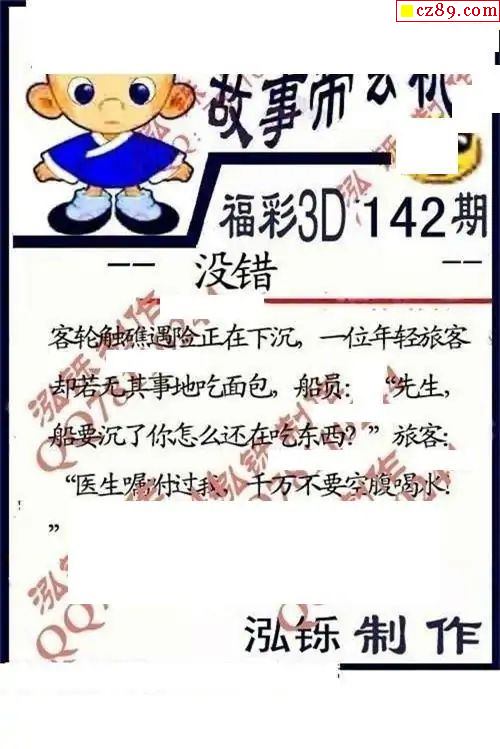 cz89.com
故事
福彩3D 142期
没错
客轮触礁遇险正在下沉，一位年轻旅客
却若无其事地吃面包，船员：“先生，
船要沉了你怎么还在吃东西？”旅客：
“医生嘱咐过我，千万不要空腹喝水！
”
泓铄制作